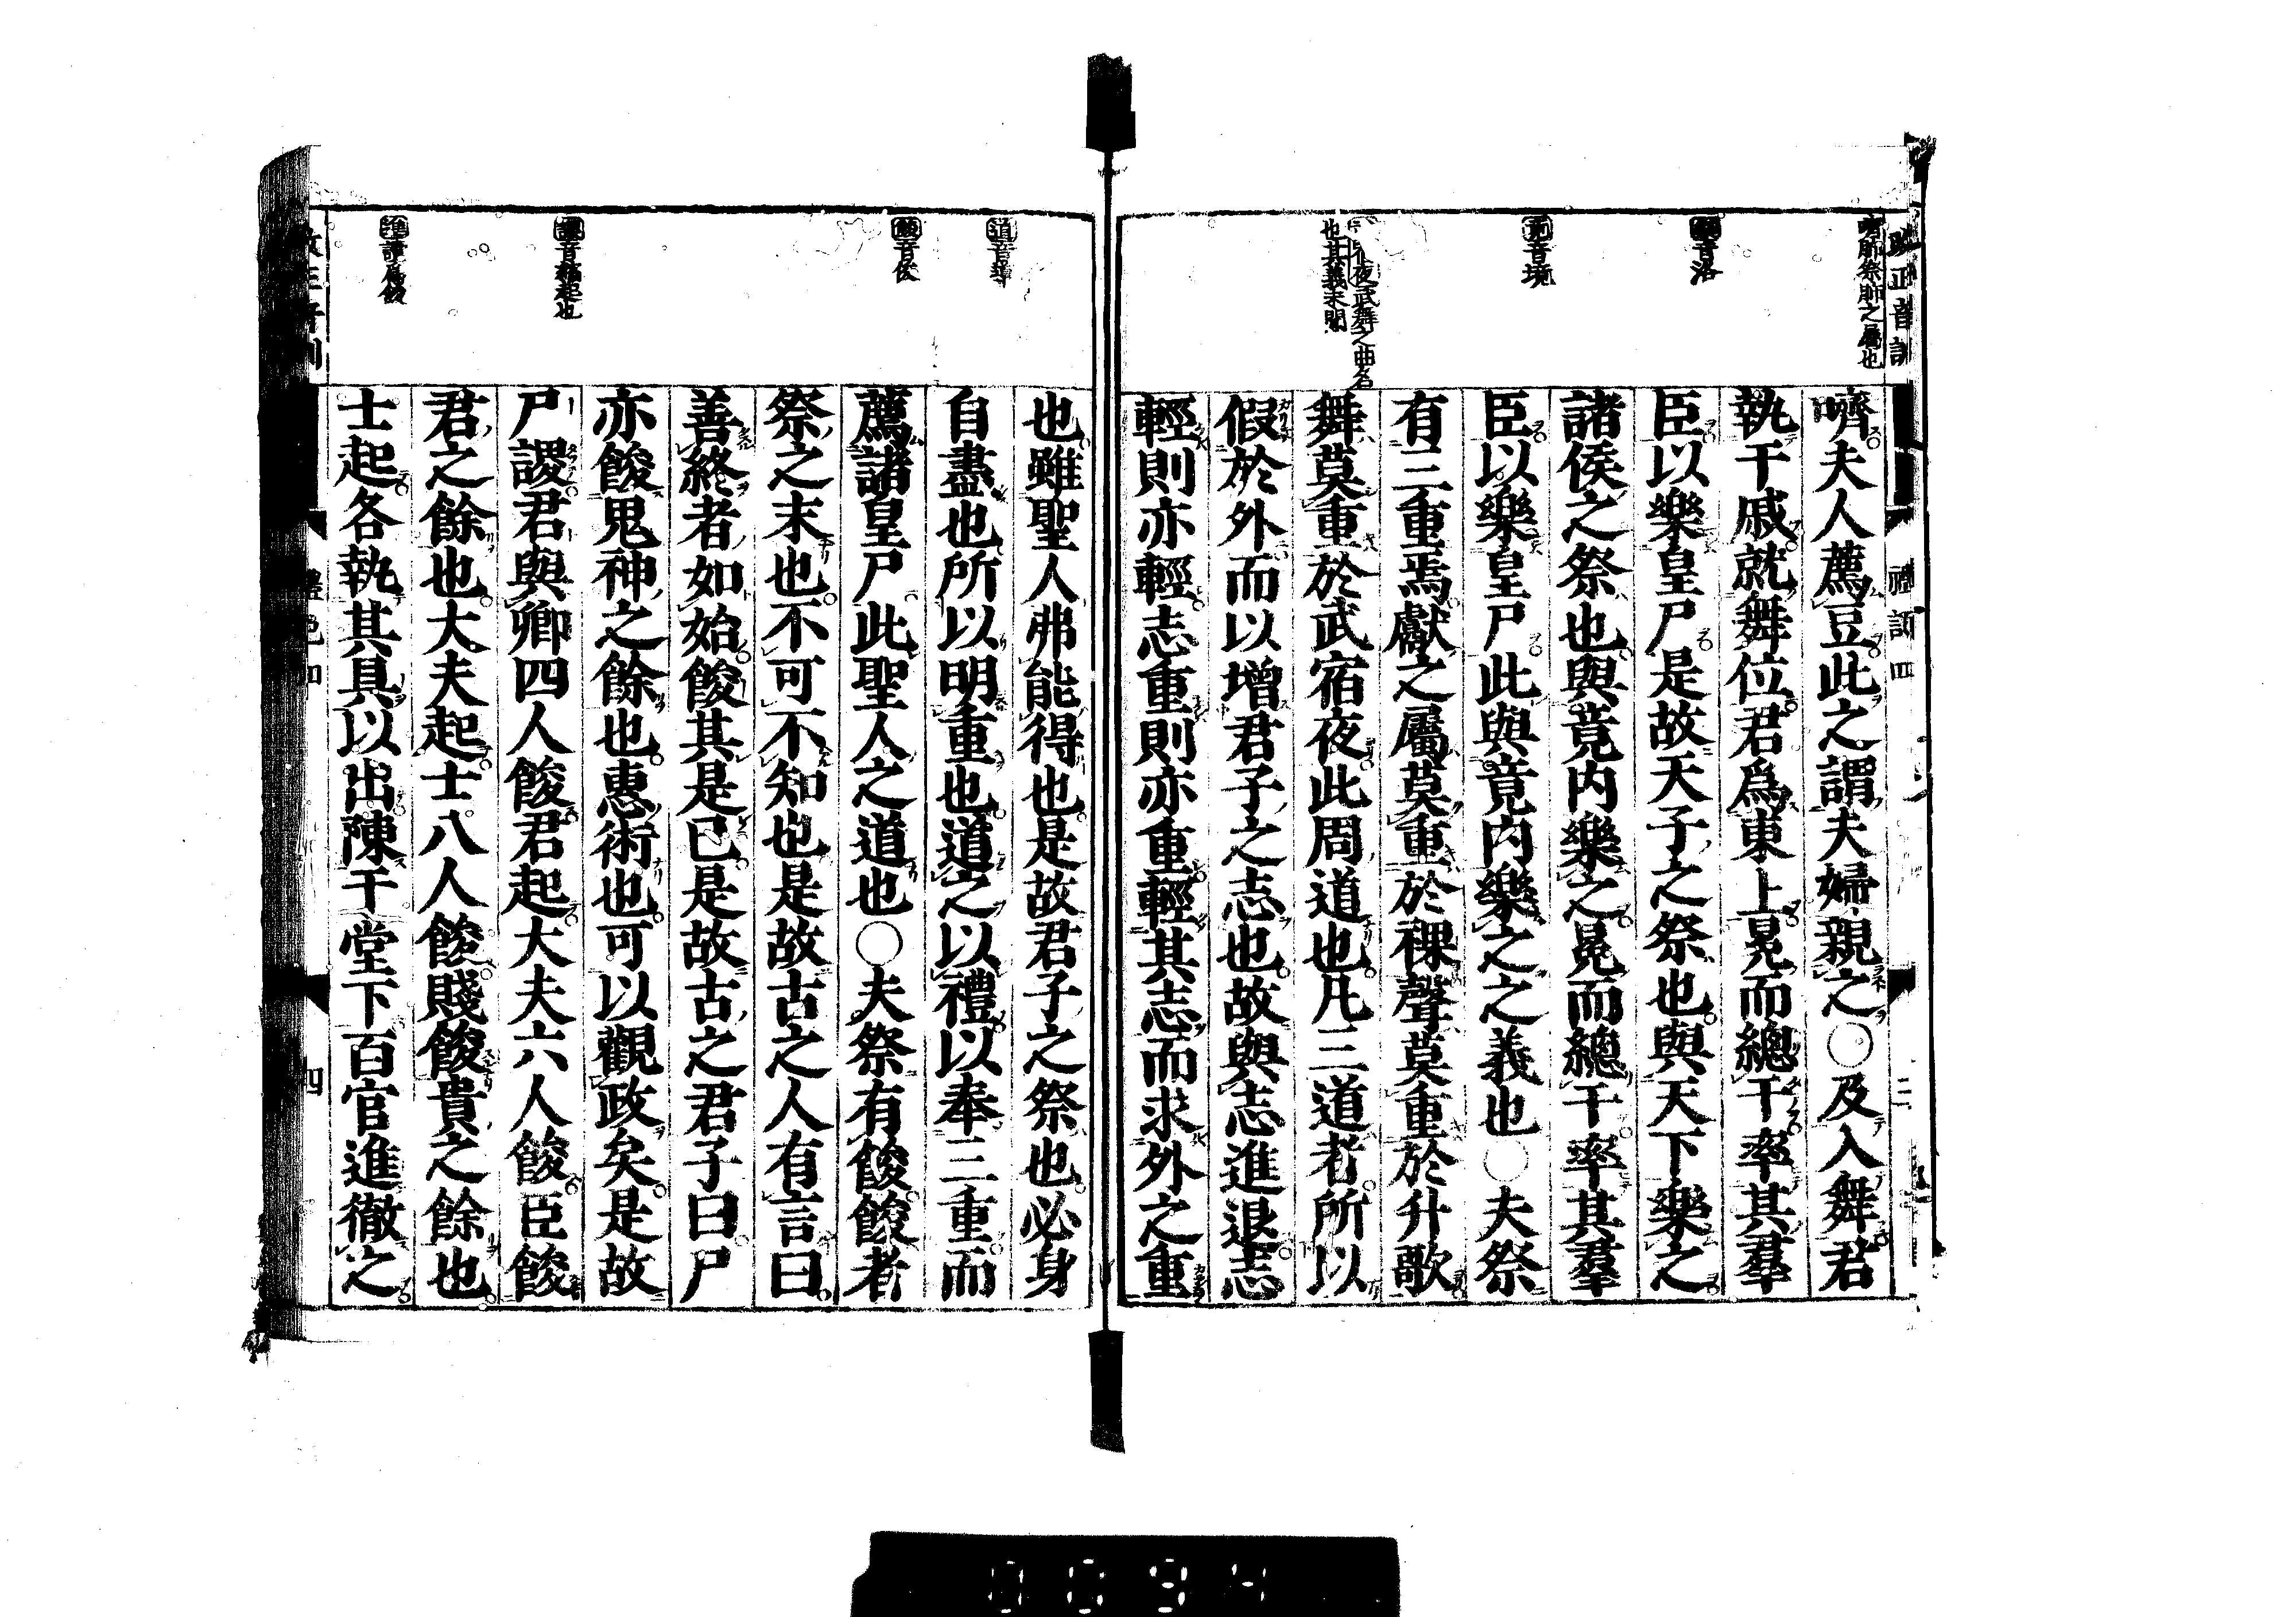 嚌肺祭肺之屬也
樂音洛
竟音境
武宿夜武舞之曲名
也其義未聞
嚌夫人薦豆此之謂夫婦親之○及入舞君
執干戚就舞位君爲東上冕而總干率其羣
臣以樂皇尸是故天子之祭也與天下樂之
諸侯之祭也與竟内樂之冕而總干率其羣
臣以樂皇尸此與竟内樂之之義也○夫祭
有三重焉獻之屬莫重於祼聲莫重於升歌
舞莫重於武宿夜此周道也凡三道者所以
假於外而以增君子之志也故與志進退志
輕則亦輕志重則亦重輕其志而求外之重
道音導
餕音俊
謖音縮起也
也雖聖人弗能得也是故君子之祭也必身
自盡也所以明重也道之以禮以奉三重而
薦諸皇尸此聖人之道也○夫祭有餕餕者
祭之末也不可不知也是故古之人有言曰
善終者如始餕其是已是故古之君子曰尸
亦餕鬼神之餘也惠術也可以觀政矣是故
尸謖君與卿四人餕君起大夫六人餕臣餕
君之餘也大夫起士八人餕賤餕貴之餘也
士起各執其具以出陳于堂下百官進徹之
四